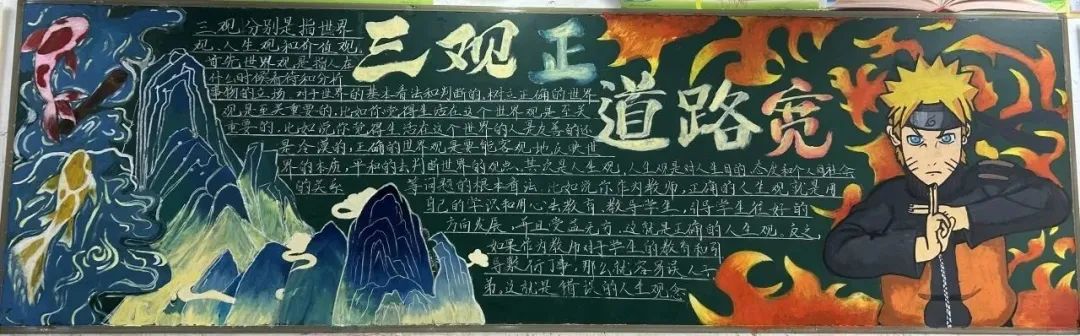 三观正
道路宽
三观,分别是指世界
观,人生观和价值观,
首先世界观是指人在
什么时候看待和分析
事物的立场,对于世界的基本看法和判断的,树立正确的世界
观是至关重要的,比如你觉得生活在这个世界观是至关
重要的,比如说你觉得生活在这个世界的人是友善的还
是冷漠的,正确的世界观是要能客观地反映世
界的本质,平和的去判断世界的观点,其次是人生观,人生观是对人生目的,态度和个人同社会
的关系 等问题的根本看法,比如说你作为教师,正确的人生观就是用
自己的学识和用心去教育,教导学生,引导学生在好的
方向发展,并且受益无穷,这就是正确的人生观,反之,
如果作为教师对于学生的教育和引
导敷衍了事,那么就容易误人子
弟,这就是错误的人生观念